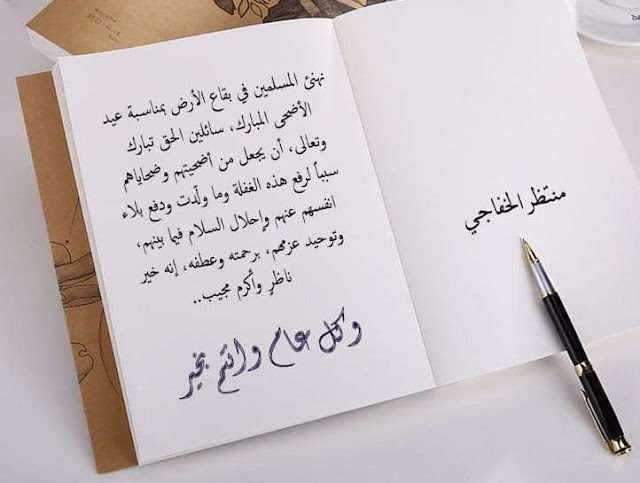 نهنئ المسلمين في بقاع الأرض بمناسبة عيد
الأضحى المبارك، سائلين الحق تبارك
وتعالى، أن يجعل من أضحيتهم وضحاياهم
سبباً لرفع هذه الغفلة وما ولّدت ودفع بلاء
انفسهم عنهم وإحلال السلام فيما بينهم،
وتوحيد عزمهم، برحمته وعطفه، إنه خير
ناظرٍ وأكرم مجيب..
وكل عام وانتم بخير
منتظر الخفاجي